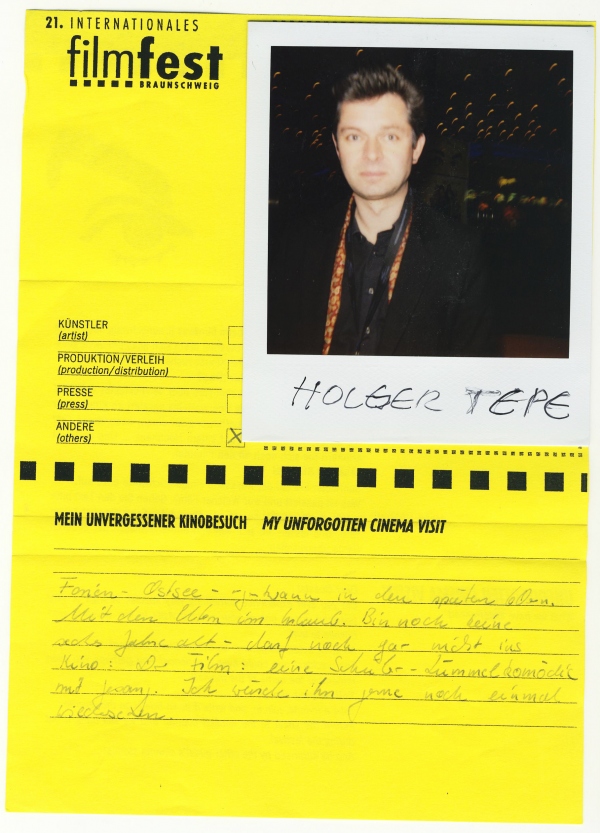 21. INTERNATIONALES
filmfest
BRAUNSCHWEIG
KÜNSTLER
(artist)
PRODUKTION/VERLEIH
(production/distribution)
PRESSE
(press)
ANDERE
(others)
HOLGER TEPE
MEIN UNVERGESSENER KINOBESUCH MY UNFORGOTTEN CINEMA VISIT
Ferien - Ostsee - irgendwann in den späten 60ern.
Mit den Eltern im Urlaub. Bin noch keine
sechs Jahre alt - darf noch gar nicht ins
Kino: Der Film: eine Schüler-Lümmelkomödie
mit Ich würde ihn gerne noch einmal
wiedersehen.